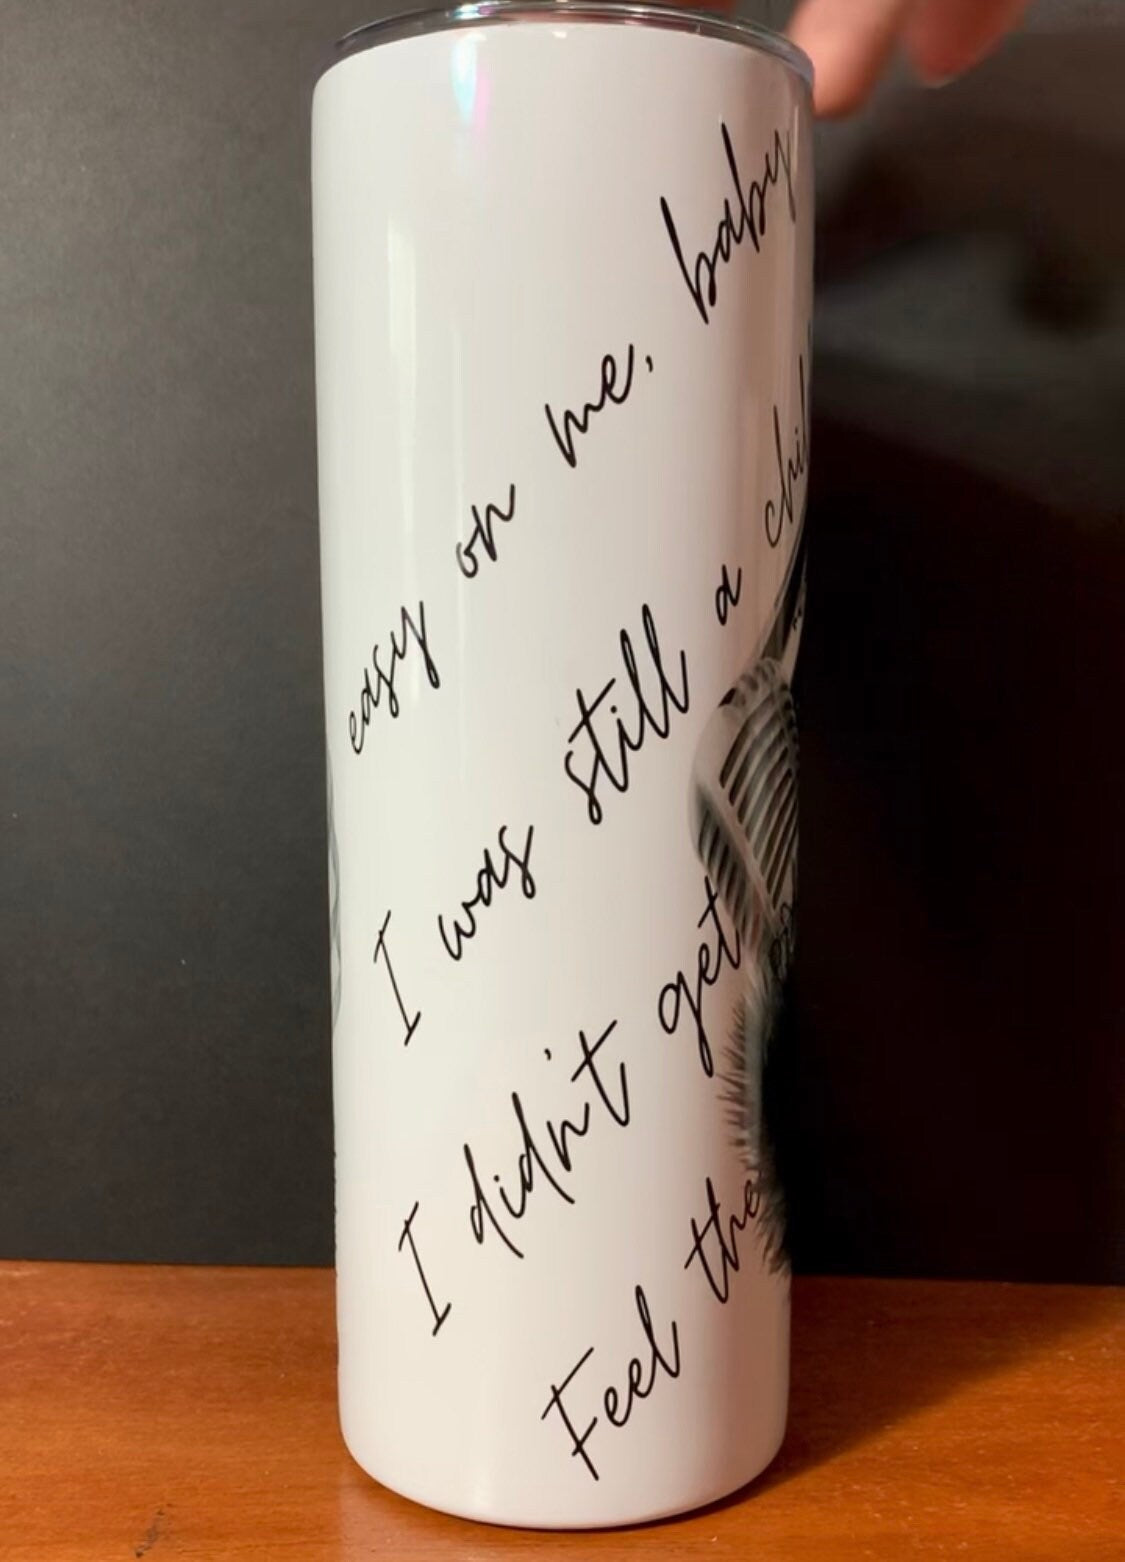 easy on me, baby
I was still a chil
I didn't get
Feel the